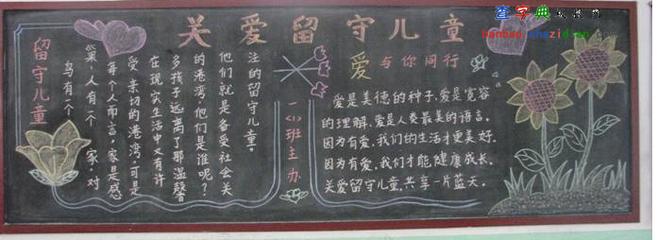 关爱留守儿童
查字典
留守儿童
鸟有一个
巢,人有一个家,对
每个人而言,家是感
受亲切的港湾。可是
在现实生活中又有许
多孩子远离了那温馨
的港湾,他们是谁呢?
他们就是备受社会关
注的留守儿童。
班主办
爱与你同行
爱是美德的种子,爱是宽容
的理解,爱是人类最美的语言,
因为有爱,我们的生活才更美好.
因为有爱,我们才能健康成长.
关爱留守儿童,共享一片蓝天。